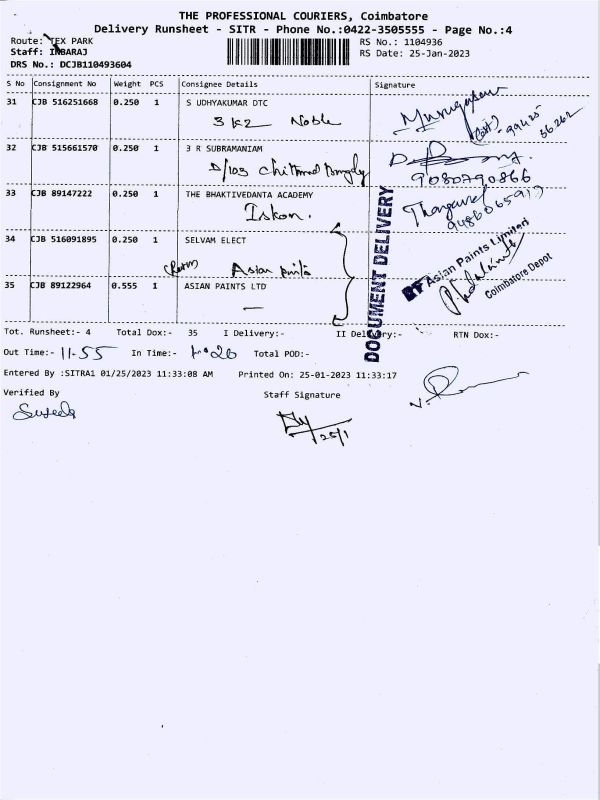 THE PROFESSIONAL COURIERS, Coimbatore
Delivery Runsheet - SITR - Phone No.:0422-3505555 - Page No.:4
Route: TEX PARK
RS No.: 1104936
Staff: INBARAJ
RS Date: 25-Jan-2023
DRS No.: DCJB110493604
S No Consignment No Weight PCS Consignee Details Signature
31 CJB 516251668 0.250 1 S UDHYAKUMAR DTC
3 K2 Noble
Murugesan
99425
56262
32 CJB 515661570 0.250 1 3 R SUBRAMANIAM
D/103
9080790866
33 CJB 89147222 0.250 1 THE BHAKTIVEDANTA ACADEMY
Iskon.
Thangavel
9486065917
34 CJB 516091895 0.250 1 SELVAM ELECT
Asian paints
35 CJB 89122964 0.555 1 ASIAN PAINTS LTD
DOCUMENT DELIVERY
Asian Paints Limited
Coimbatore Depot
Tot. Runsheet:- 4 Total Dox:- 35 I Delivery:- II Delivery:- RTN Dox:-
Out Time:- 11-55 In Time:- Total POD:-
Entered By :SITRA1 01/25/2023 11:33:08 AM Printed On: 25-01-2023 11:33:17
Verified By Staff Signature
25/1